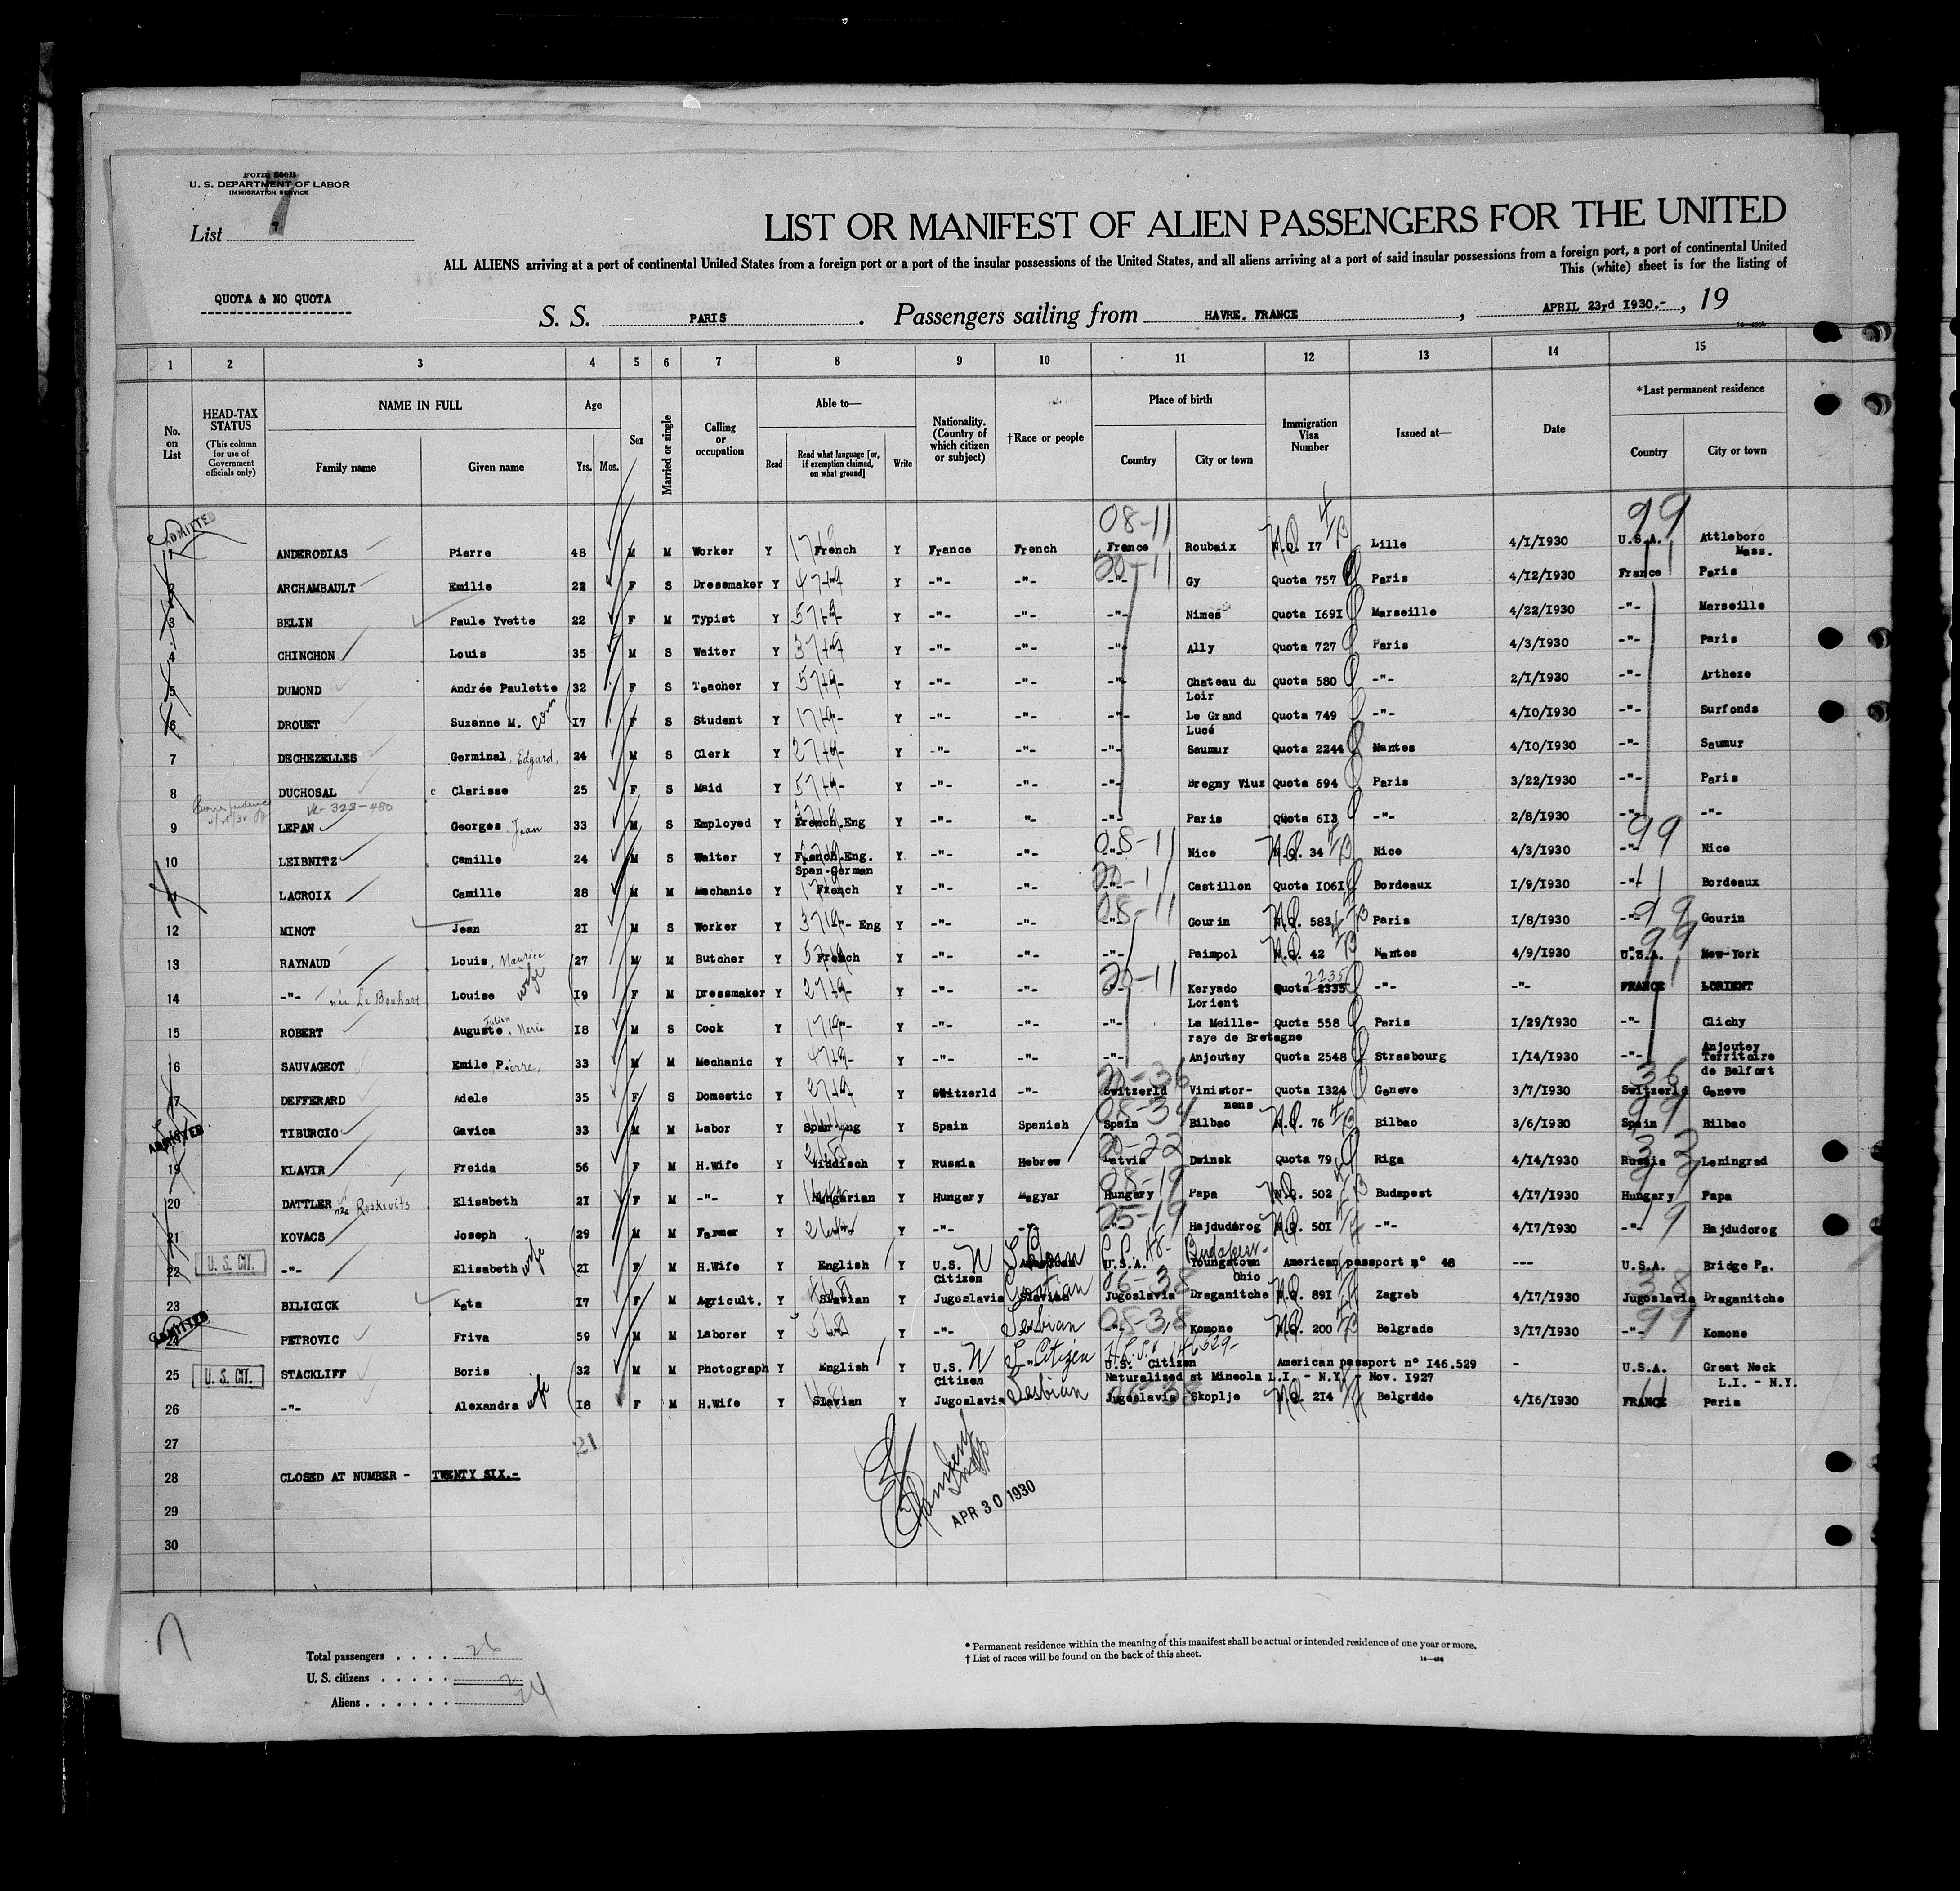 Form 500B
U. S. DEPARTMENT OF LABOR
IMMIGRATION SERVICE
List 7 7
LIST OR MANIFEST OF ALIEN PASSENGERS FOR THE UNITED
ALL ALIENS arriving at a port of continental United States from a foreign port or a port of the insular possessions of the United States, and all aliens arriving at a port of said insular possessions from a foreign port, a port of continental United
This (white) sheet is for the listing of
QUOTA & NO QUOTA
S. S. PARIS . Passengers sailing from HAVRE. FRANCE , APRIL 23rd 1930.- , 19
1 2 3 4 5 6 7 8 9 10 11 12 13 14 15
No. on List
HEAD-TAX STATUS (This column for use of Government officials only)
NAME IN FULL Family name Given name
Age Yrs. Mos.
Sex
Married or single
Calling or occupation
Able to— Read Read what language [or, if exemption claimed, on what ground] Write
Nationality. (Country of which citizen or subject)
†Race or people
Place of birth Country City or town
Immigration Visa Number
Issued at—
Date
*Last permanent residence Country City or town
ADMITTED 08-11 99
1 ANDERODIAS Pierre 48 M M Worker Y French Y France French France Roubaix N.Q. 17 Lille 4/1/1930 U.S.A. Attleboro Mass.
2 ARCHAMBAULT Emilie 22 F S Dressmaker Y -"- Y -"- -"- -"- Gy Quota 757 Paris 4/12/1930 France Paris
3 BELIN Paule Yvette 22 F M Typist Y -"- Y -"- -"- -"- Nimes Quota 1691 Marseille 4/22/1930 -"- Marseille
4 CHINCHON Louis 35 M S Waiter Y -"- Y -"- -"- -"- Ally Quota 727 Paris 4/3/1930 -"- Paris
5 DUMOND Andrée Paulette 32 F S Teacher Y -"- Y -"- -"- -"- Chateau du Loir Quota 580 -"- 2/1/1930 -"- Artheze
6 DROUET Suzanne M. 17 F S Student Y -"- Y -"- -"- -"- Le Grand Lucé Quota 749 -"- 4/10/1930 -"- Surfonds
7 DECHEZELLES Germinal Edgard. 24 M S Clerk Y -"- Y -"- -"- -"- Saumur Quota 2244 Nantes 4/10/1930 -"- Saumur
8 DUCHOSAL c Clarisse 25 F S Maid Y -"- Y -"- -"- -"- Bregny Viuz Quota 694 Paris 3/22/1930 -"- Paris
323-480
9 LEPAN Georges, Jean 33 M S Employed Y French.Eng Y -"- "- -"- Paris Quota 613 -"- 2/8/1930 -"- -"-
10 LEIBNITZ Camille 24 M S Waiter Y French.Eng. Span.German Y -"- -"- -"- 08-11 Nice N.Q. 34 Nice 4/3/1930 -"- 99 Nice
11 LACROIX Camille 28 M M Mechanic Y French Y -"- -"- -"- Castillon Quota 1061 Bordeaux 1/9/1930 -"- Bordeaux
12 MINOT Jean 21 M S Worker Y -"- Eng Y -"- -"- -"- 08-11 Gourin N.Q. 583 Paris 1/8/1930 -"- 99 Gourin
13 RAYNAUD Louis, Maurice 27 M M Butcher Y French Y -"- -"- -"- Paimpol N.Q. 42 Nantes 4/9/1930 U.S.A. 99 New-York
14 -"- née Le Bouhart Louise wife 19 F M Dressmaker Y -"- Y -"- -"- -"- 20-11 Keryado Lorient Quota 2335 2235 -"- -"- FRANCE LORIENT
15 ROBERT Auguste, Marie 18 M S Cook Y -"- Y -"- -"- -"- La Meille-raye de Bretagne Quota 558 Paris 1/29/1930 -"- Clichy
16 SAUVAGEOT Emile, Pierre, 33 M M Mechanic Y -"- Y -"- -"- -"- Anjoutey Quota 2548 Strasbourg 1/14/1930 -"- Anjoutey Territoire de Belfort
17 DEFFERARD Adele 35 F S Domestic Y -"- Y Switzerld -"- Switzerld 20-36 Vinistor-nens Quota 1324 Geneve 3/7/1930 Switzerld 36 Geneve
ADMITTED TIBURCIO Gavica 33 M M Labor Y Span·eng Y Spain Spanish Spain 08-34 Bilbao N.Q. 76 Bilbao 3/6/1930 Spain 99 Bilbao
19 KLAVIR Freida 56 F M H.Wife Y Yiddisch Y Russia Hebrew Latvia 20-22 Dwinsk Quota 79 Riga 4/14/1930 Russia Leningrad
20 DATTLER née Roskovits Elisabeth 21 F M -"- Y Hungarian Y Hungary Magyar Hungary 08-19 Papa N.Q. 502 Budapest 4/17/1930 Hungary Papa
21 KOVACS Joseph 29 M M Farmer Y Y -"- -"- 25-19 Hajdudorog N.Q. 501 -"- 4/17/1930 -"- 19 Hajdudorog
22 U. S. CIT. -"- Elisabeth wife 21 F M H.Wife Y English Y U.S. Citizen U.S.A. Youngstown Ohio American passport n° 48 --- U.S.A. Bridge Pa.
23 BILICICK Kata 17 F M Agricult. Y Slavian Y Jugoslavia Slavian Jugoslavia 06-38 Draganitche N.Q. 891 Zagreb 4/17/1930 Jugoslavia 38 Draganitche
ADMITTED
24 PETROVIC Friva 59 M M Laborer Y Y -"- Serbian -"- 08-38 Komone N.Q. 200 Belgrade 3/17/1930 -"- 99 Komone
25 U. S. CIT. STACKLIFF Boris 32 M M Photograph Y English U.S. Citizen Citizen U.S. Citizen 146529- American passport n° 146.529 - U.S.A. Great Neck L.I. - N.Y.
Naturalized at Mineola L.I. - N.Y. - Nov. 1927
26 -"- Alexandra wife 18 F M H.Wife Y Slavian Y Jugoslavia Serbian Jugoslavia Skoplje N.Q. 214 Belgrade 4/16/1930 FRANCE Paris
27 21
28 CLOSED AT NUMBER - TWENTY SIX.-
29
30
APR 30 1930
Total passengers . . . . 26
U. S. citizens . . . . . 2
Aliens . . . . . . 24
* Permanent residence within the meaning of this manifest shall be actual or intended residence of one year or more.
† List of races will be found on the back of this sheet.